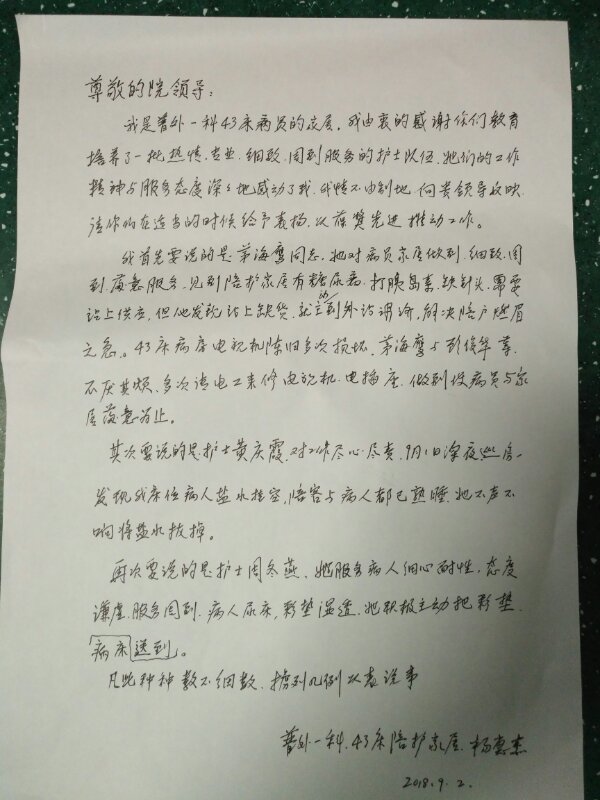 尊敬的院领导：
我是普外一科43床病员的家属。我由衷的感谢你们教育
培养了一批热情、专业、细致、周到服务的护士队伍。她们的工作
精神与服务态度深深地感动了我。我情不由别地向贵领导反映
请你们在适当的时候给予表扬。以葆赞先进推动工作。
我首先要说的是茅海鹰同志，她对病员家属做到细致、周
到、满意服务。见到陪护家属有糖尿病，打胰岛素缺针头，需要
站上供应，但她发现站上缺货，就立即到外站调济，解决陪户燃眉
之急。43床病房电视机陈旧多次损坏，茅海鹰与彭俊华等
不厌其烦、多次请电工来修电视机、电插座，做到使病员与家
属满意为止。
其次要说的是护士黄庆霞，对工作尽心尽责，9月1日深夜巡房，
发现我床位病人盐水挂空，陪客与病人都已熟睡，她不声不
响将盐水拔掉。
再次要说的是护士周冬燕，她服务病人细心耐性，态度
谦虚，服务周到，病人尿床，整垫湿透，她积极主动把整垫
病床送到。
凡此种种数不细数，摘列几例以表说事
普外一科、43床陪护家属、杨
2018.9.2.